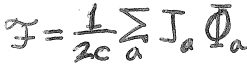 ℱ = 1/2c Σ_a J_a Φ_a